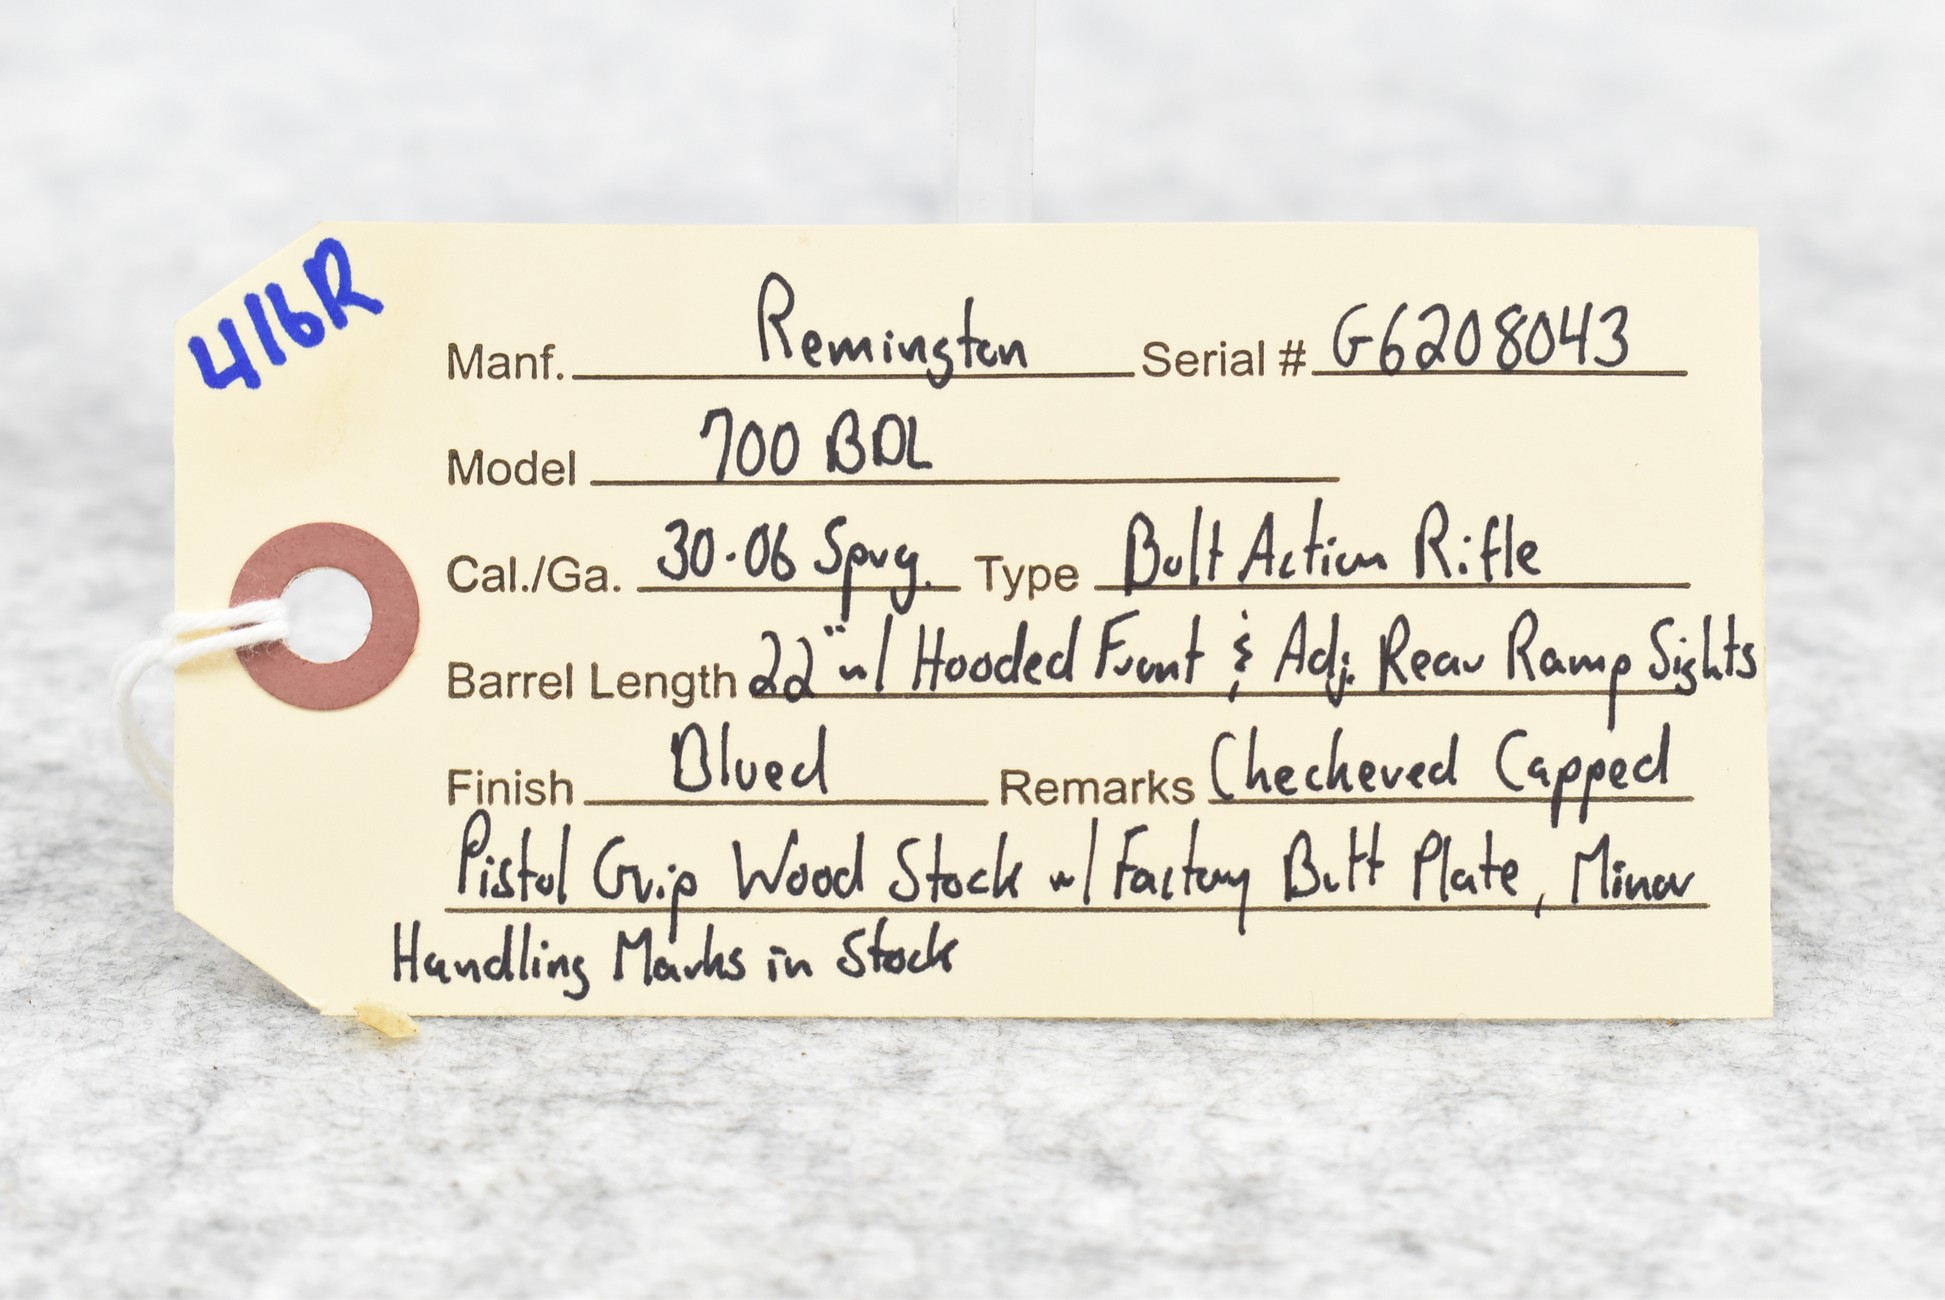 416R
Manf. Remington Serial # G6208043
Model 700 BDL
Cal./Ga. 30-06 Sprg. Type Bolt Action Rifle
Barrel Length 22" w/ Hooded Front & Adj. Rear Ramp Sights
Finish Blued Remarks Checkered Capped
Pistol Grip Wood Stock w/ Factory Butt Plate, Minor
Handling Marks in Stock